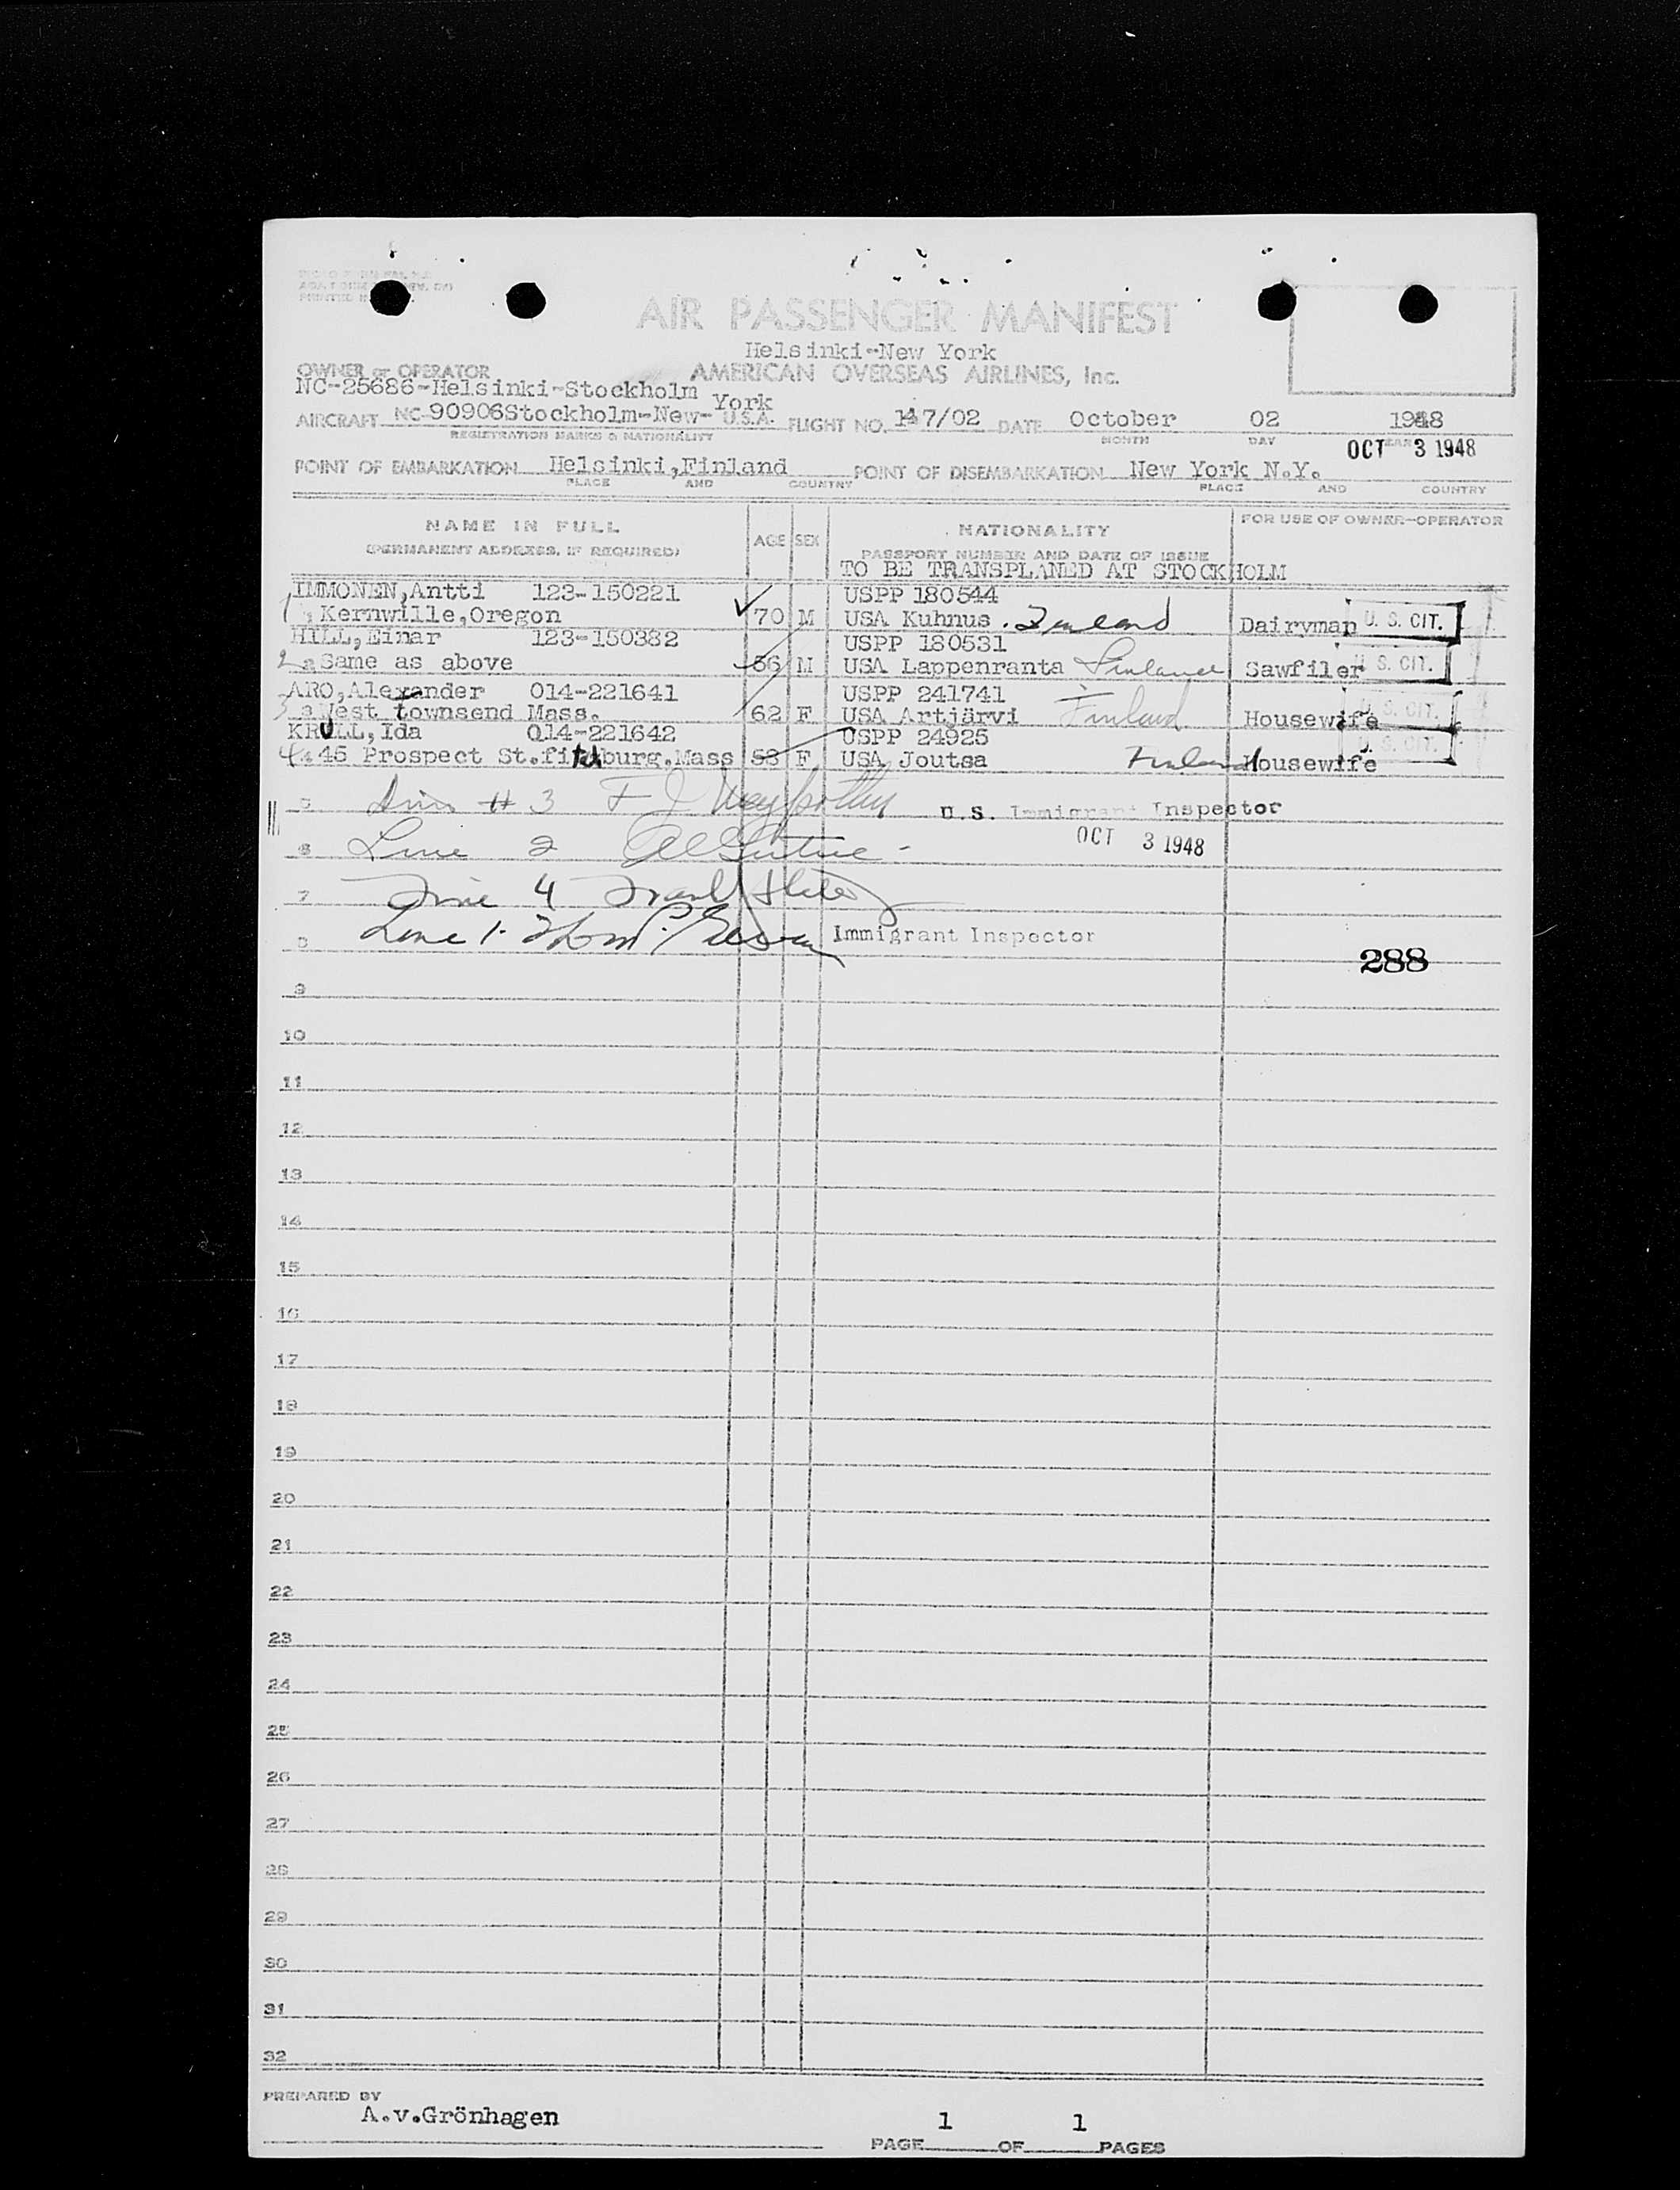 AIR PASSENGER MANIFEST
Helsinki-New York
OWNER or OPERATOR AMERICAN OVERSEAS AIRLINES, Inc.
NC-25686-Helsinki-Stockholm
AIRCRAFT NC-90906Stockholm-New-York U.S.A. FLIGHT NO. 147/02 DATE October 02 1948
REGISTRATION MARKS & NATIONALITY MONTH DAY YEAR
OCT 3 1948
POINT OF EMBARKATION Helsinki,Finland POINT OF DISEMBARKATION New York N.Y.
PLACE AND COUNTRY PLACE AND COUNTRY
NAME IN FULL AGE SEX NATIONALITY FOR USE OF OWNER-OPERATOR
(PERMANENT ADDRESS, IF REQUIRED) PASSPORT NUMBER AND DATE OF ISSUE
TO BE TRANSPLANED AT STOCKHOLM
IMMONEN,Antti 123-150221 USPP 180544
1 Kernwille,Oregon 70 M USA Kuhnus. Finland Dairyman U. S. CIT.
HILL,Einar 123-150382 USPP 180531
2 Same as above 56 M USA Lappenranta Finland Sawfiler U. S. CIT.
ARO,Alexander 014-221641 USPP 241741
3 West townsend Mass. 62 F USA Artjärvi Finland Housewife U. S. CIT.
KRULL,Ida 014-221642 USPP 24925
4 45 Prospect St.fitchburg.Mass 58 F USA Joutsa Finland Housewife U. S. CIT.
5 Line # 3 F J U.S. Immigrant Inspector
OCT 3 1948
6 Line 2
7 Line 4 Frank
8 Line 1. Immigrant Inspector
288
9
10
11
12
13
14
15
16
17
18
19
20
21
22
23
24
25
26
27
28
29
30
31
32
PREPARED BY
A.v.Grönhagen
PAGE 1 OF 1 PAGES